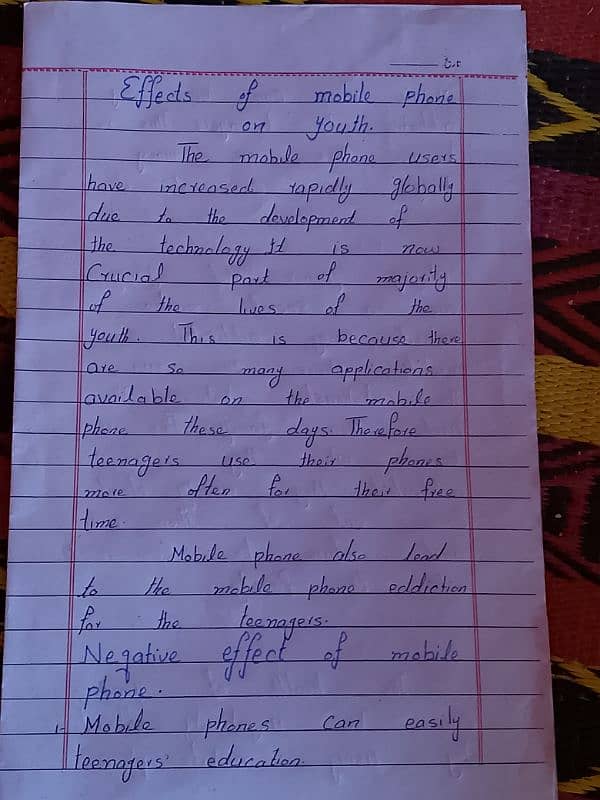 Effects of mobile phone
on youth.
The mobile phone users
have increased rapidly globally
due to the development of
the technology. It is now
Crucial part of majority
of the lives of the
youth. This is because there
are so many applications
available on the mobile
phone these days. Therefore
teenagers use their phones
more often for their free
time.
Mobile phone also lead
to the mobile phone eddiction
for the teenagers.
Negative effect of mobile
phone.
1- Mobile phones can easily
teenagers' education.